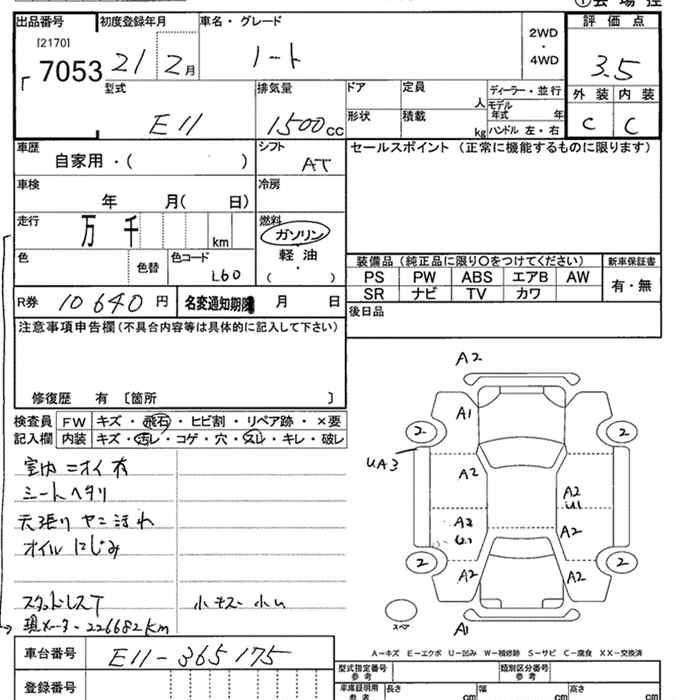 ① 会 場 控
出品番号 初度登録年月 車名・グレード 評 価 点
[2170] 7053 21 2月 ノート 2WD・4WD 3.5
型式 排気量 ドア 定員 人 ディーラー・並行 外 装 内 装
E11 1500cc 形状 積載 kg モデル年式 年 ハンドル 左・右 C C
車歴 自家用・( ) シフト AT セールスポイント (正常に機能するものに限ります)
車検 年 月( 日) 冷房
走行 万 千 km 燃料 ガソリン
色 色替 色コード L60 軽油・( )
装備品 (純正品に限り○をつけてください) 新車保証書
PS PW ABS エアB AW 有・無
SR ナビ TV カワ
R券 10640 円 名変通知期限 月 日 後日品
注意事項申告欄(不具合内容等は具体的に記入して下さい)
修復歴 有 〔箇所 〕
検査員 FW キズ・飛石・ヒビ割・リペア跡・×要
記入欄 内装 キズ・汚レ・コゲ・穴・スレ・キレ・破レ
室内ニオイ有
シートヘタリ
天張りヤニ汚れ
オイルにじみ
スタッドレスT
現メーター 226682km
A2
A1
2 2
UA3
A2 A2
U1
A2 A2
U1
2 2
A2 A2
スペア
A1
A-キズ E-エクボ U-凹み W-補修跡 S-サビ C-腐食 XX-交換済
車台番号 E11-365175
型式指定番号 参考 類別区分番号 参考
登録番号
車庫証明用 参考 長さ cm 幅 cm 高さ cm